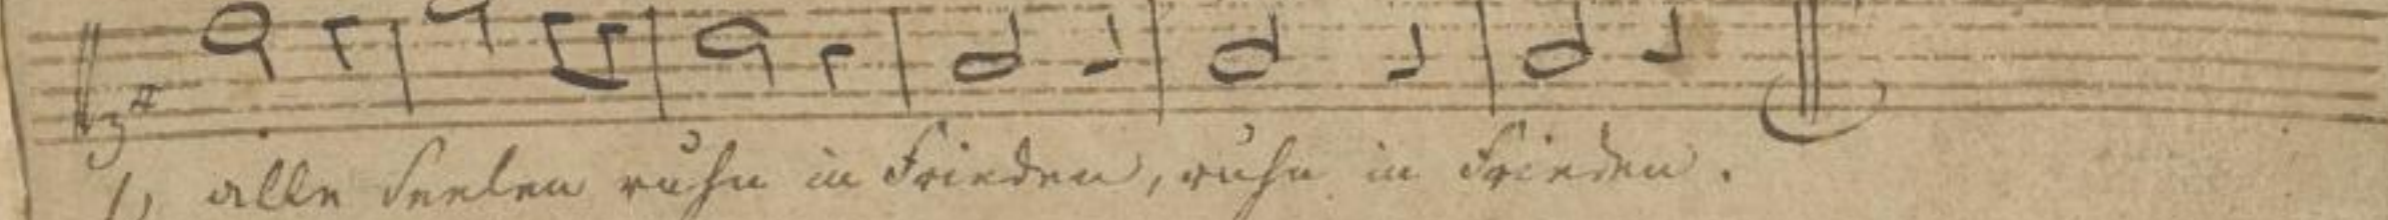 alle Seelen ruhn in Frieden, ruhn in Frieden.